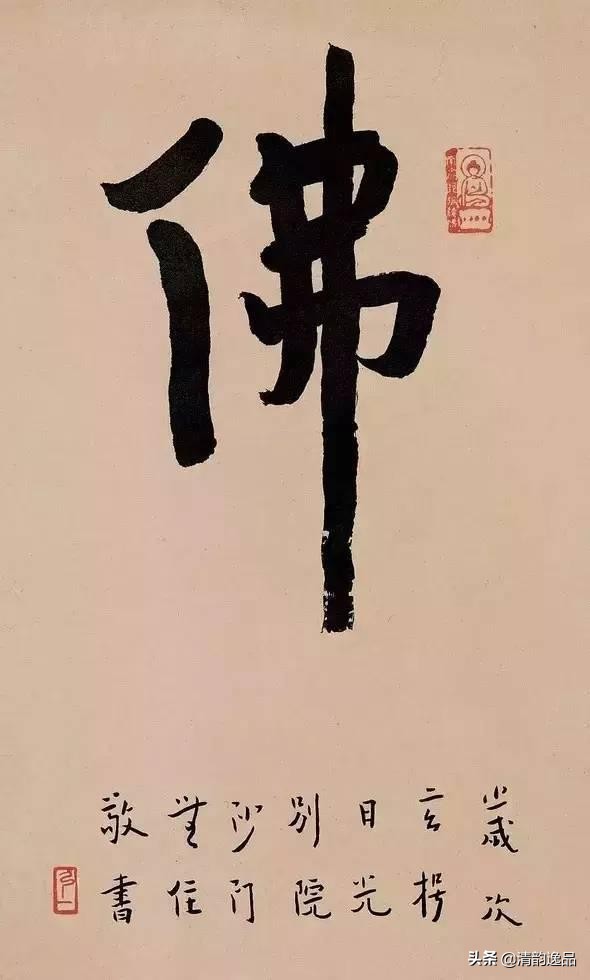 佛
歲次
玄枵
日光
別院
沙門
無住
敬書
弘一
头条 @清韵逸品